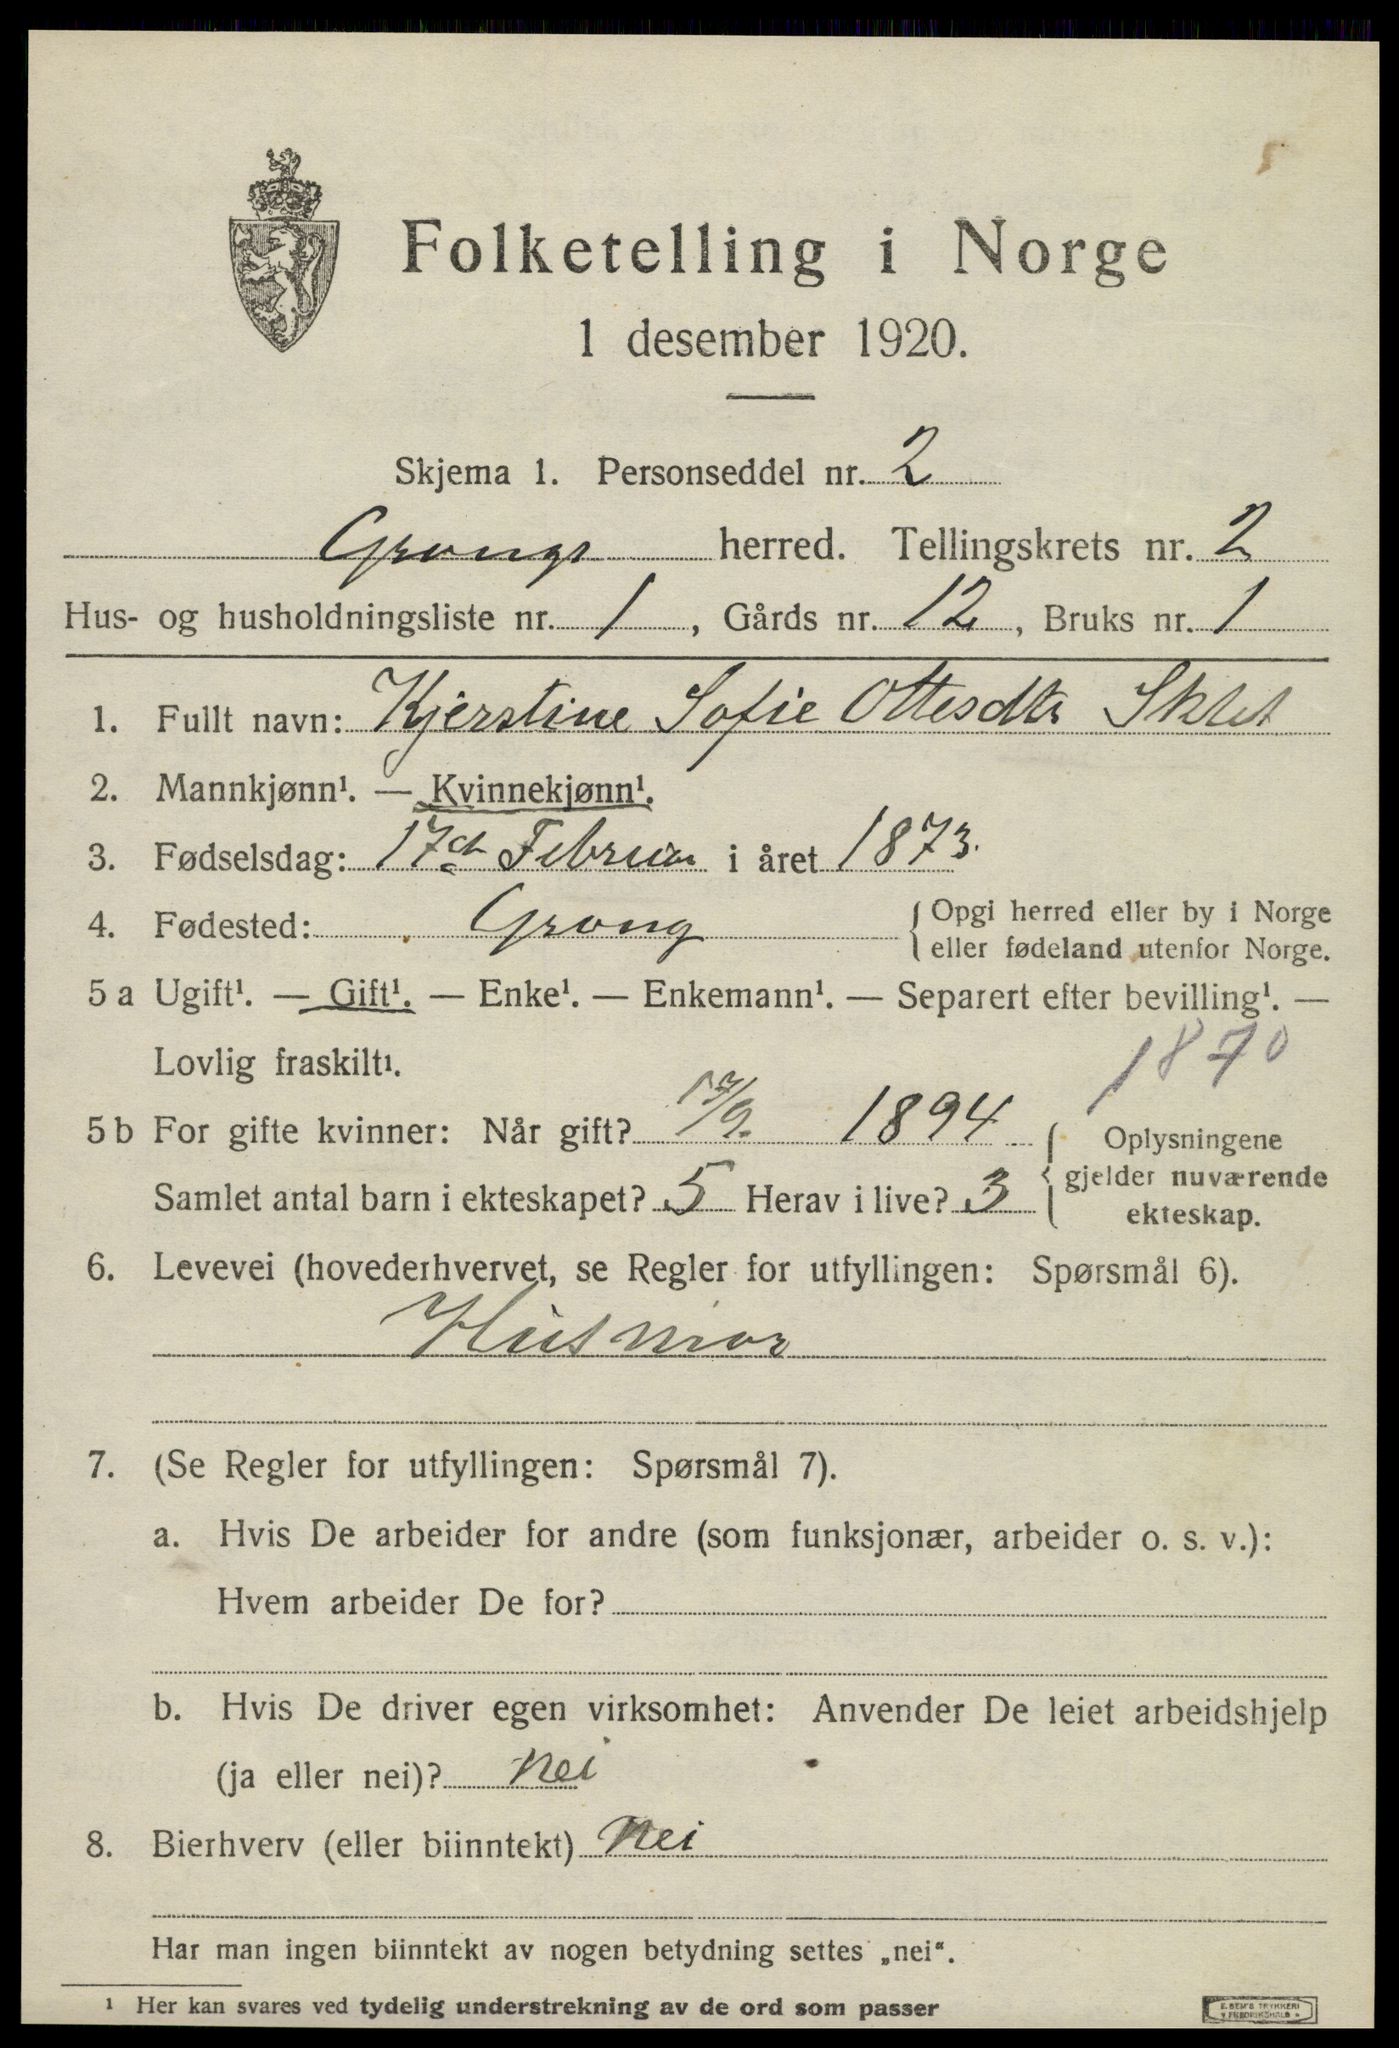 Folketelling i Norge
1 desember 1920.
Skjema 1. Personseddel nr. 2
Grongs herred. Tellingskrets nr. 2
Hus- og husholdningsliste nr. 1, Gårds nr. 12, Bruks nr. 1
1. Fullt navn: Kjerstine Sofie Ottesdtr
2. Mannkjønn¹. — Kvinnekjønn¹.
3. Fødselsdag: 17de Februar i året 1873.
4. Fødested: Grong { Opgi herred eller by i Norge
eller fødeland utenfor Norge.
5 a Ugift¹. — Gift¹. — Enke¹. — Enkemann¹. — Separert efter bevilling¹. —
Lovlig fraskilt¹.
1870
5 b For gifte kvinner: Når gift? 17/9. 1894
Samlet antal barn i ekteskapet? 5 Herav i live? 3
{ Oplysningene
gjelder nuværende
ekteskap.
6. Levevei (hovederhvervet, se Regler for utfyllingen: Spørsmål 6).
Husmor
7. (Se Regler for utfyllingen: Spørsmål 7).
a. Hvis De arbeider for andre (som funksjonær, arbeider o. s. v.):
Hvem arbeider De for?
b. Hvis De driver egen virksomhet: Anvender De leiet arbeidshjelp
(ja eller nei)? nei
8. Bierhverv (eller biinntekt) nei
Har man ingen biinntekt av nogen betydning settes „nei“.
¹ Her kan svares ved tydelig understrekning av de ord som passer
E. SEM'S TRYKKERI
FREDRIKSHALD